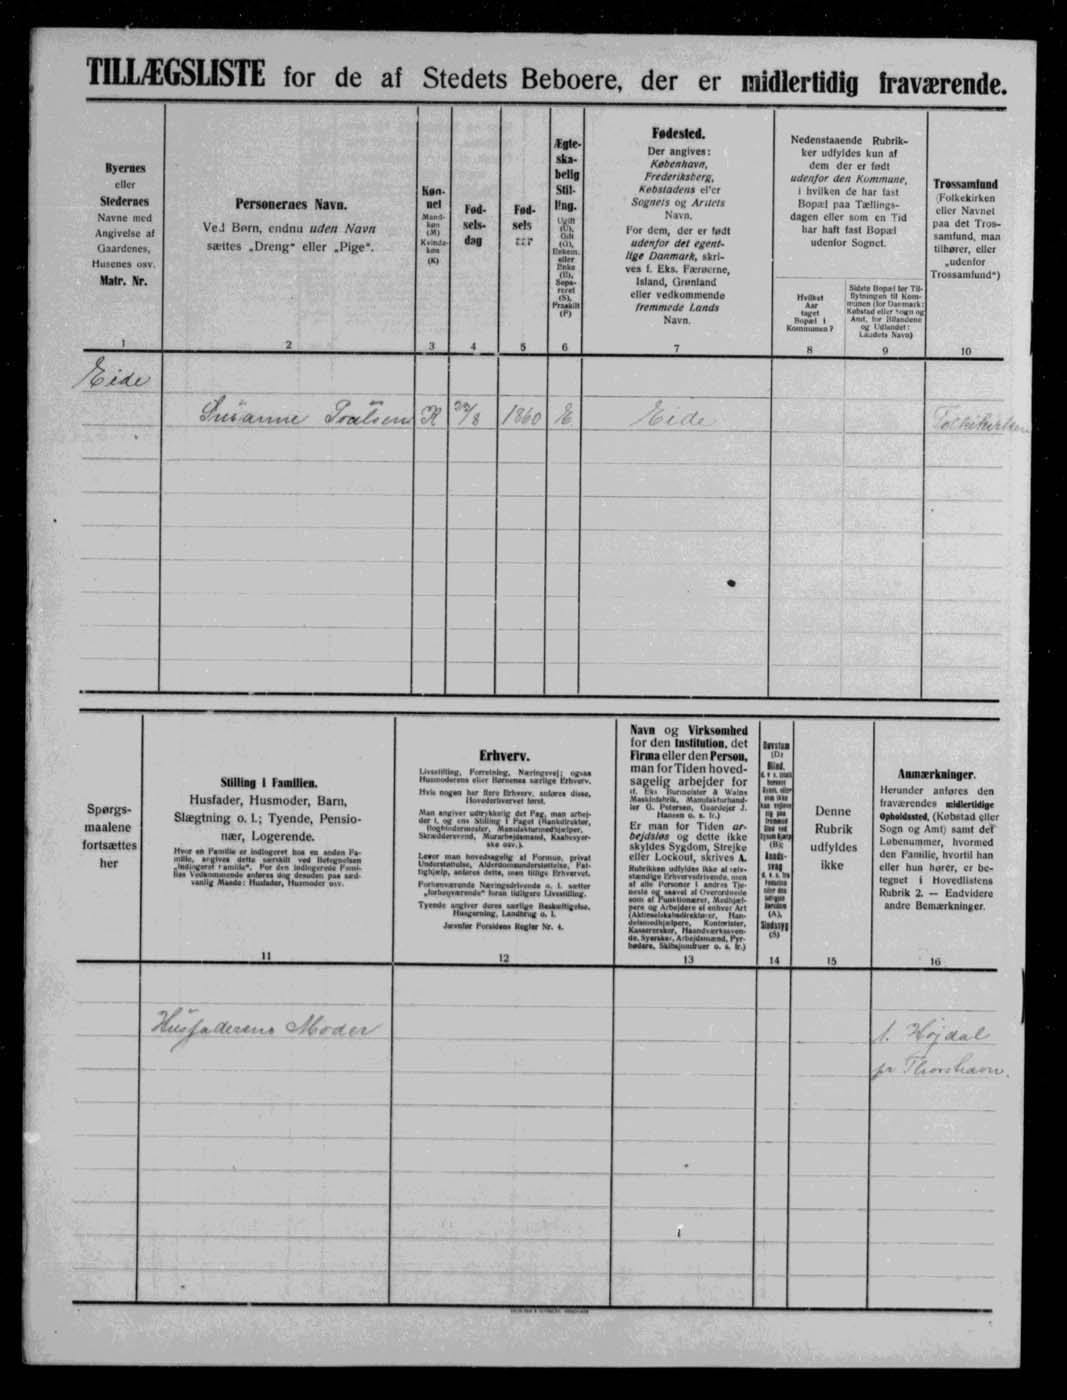 TILLÆGSLISTE for de af Stedets Beboere, der er midlertidig fraværende.
Byernes
eller
Stedernes
Navne med
Angivelse af
Gaardenes,
Husenes osv.
Matr. Nr.
1
Personernes Navn.
Ved Børn, endnu uden Navn
sættes „Dreng“ eller „Pige“.
2
Køn-
net
Mand-
køn
(M)
Kvinde-
køn
(K)
3
Fød-
sels-
dag
4
Fød-
sels
aar
5
Ægte-
ska-
belig
Stil-
ling.
Ugift
(U),
Gift
(G),
Enkem.
eller
Enke
(E),
Sepa-
reret
(S),
Fraskilt
(F)
6
Fødested.
Der angives:
København,
Frederiksberg,
Købstadens eller
Sognets og Amtets
Navn.
For dem, der er født
udenfor det egent-
lige Danmark, skri-
ves f. Eks. Færøerne,
Island, Grønland
eller vedkommende
fremmede Lands
Navn.
7
Nedenstaaende Rubrik-
ker udfyldes kun af
dem der er født
udenfor den Kommune,
i hvilken de har fast
Bopæl paa Tællings-
dagen eller som en Tid
har haft fast Bopæl
udenfor Sognet.
Hvilket
Aar
taget
Bopæl i
Kommunen?
8
Sidste Bopæl før Til-
flytningen til Kom-
munen (for Danmark:
Købstad eller Sogn og
Amt, for Bilandene
og Udlandet:
Landets Navn)
9
Trossamfund
(Folkekirken
eller Navnet
paa det Tros-
samfund, man
tilhører, eller
„udenfor
Trossamfund“)
10
Eide
Susanne Poulsen K 22/8 1860 E Eide Folkekirken
Spørgs-
maalene
fortsættes
her
Stilling i Familien.
Husfader, Husmoder, Barn,
Slægtning o. l.; Tyende, Pensio-
nær, Logerende.
Hvor en Familie er indlogeret hos en anden Fa-
milie, angives dette særskilt ved Betegnelsen
„indlogeret Familie“. For den indlogerede Fami-
lies Vedkommende anføres dog desuden paa sæd-
vanlig Maade: Husfader, Husmoder osv.
11
Erhverv.
Livsstilling, Forretning, Næringsvej; ogsaa
Husmoderens eller Børnenes særlige Erhverv.
Hvis nogen har flere Erhverv, anføres disse,
Hovederhvervet først.
Man angiver udtrykkelig det Fag, man arbej-
der i, og ens Stilling i Faget (Bankdirektør,
Bogbindermester, Manufakturmedhjælper,
Skræddersvend, Murarbejdsmand, Kaabesyer-
ske osv.).
Lever man hovedsagelig af Formue, privat
Understøttelse, Alderdomsunderstøttelse, Fat-
tighjælp, anføres dette, men tillige Erhvervet.
Forhenværende Næringsdrivende o. l. sætter
„forhenværende“ foran tidligere Livsstilling.
Tyende angiver deres særlige Beskæftigelse,
Husgerning, Landbrug o. l.
Jævnfør Forsidens Regler Nr. 4.
12
Navn og Virksomhed
for den Institution, det
Firma eller den Person,
man for Tiden hoved-
sagelig arbejder for
(f. Eks Burmeister & Wains
Maskinfabrik, Manufakturhand-
ler G. Petersen, Gaardejer J.
Hansen o. s. fr.)
Er man for Tiden ar-
bejdsløs og dette ikke
skyldes Sygdom, Strejke
eller Lockout, skrives A.
Rubrikken udfyldes ikke af selv-
stændige Erhvervsdrivende, men
af alle Personer i andres Tje-
neste og saavel af Overordnede
som af Funktionærer, Medhjæl-
pere og Arbejdere af enhver Art
(Aktieselskabsdirektører, Han-
delsmedhjælpere, Kontorister,
Kasserersker, Haandværkssven-
de, Syersker, Arbejdsmænd, Fyr-
bødere, Skibsjomfruer o. s. fr.)
13
Døvstum
(D)
Blind,
(B);
Aands-
svag
(A),
Sindssyg
(S)
14
Denne
Rubrik
udfyldes
ikke
15
Anmærkninger.
Herunder anføres den
fraværendes midlertidige
Opholdssted, (Købstad eller
Sogn og Amt) samt det
Løbenummer, hvormed
den Familie, hvortil han
eller hun hører, er be-
tegnet i Hovedlistens
Rubrik 2. — Endvidere
andre Bemærkninger.
16
Husfaderens Moder
1. Højdal
pr Thorshavn.